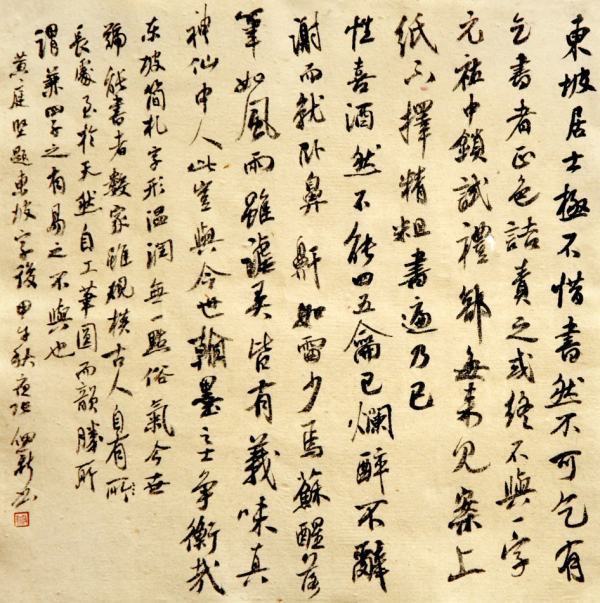 東坡居士極不惜書然不可乞有
乞書者正色詰責之或終不與一字
元祐中鎖試禮部每來見案上
紙不擇精粗書遍乃已
性喜酒然不能四五龠已爛醉不辭
謝而就卧鼻鼾如雷少焉蘇醒落
筆如風雨雖謔弄皆有義味真
神仙中人此豈與今世翰墨之士爭衡哉
东坡简札字形温润無一點俗氣今世
號能書者數家雖規模古人自有所
長處至於天然自工筆圓而韻勝所
謂兼四子之有易之不與也
黄庭堅題東坡字後甲午秋夜